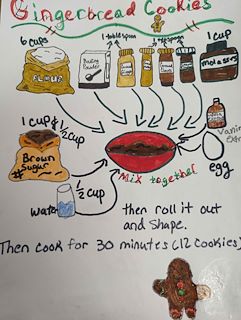 Gingerbread Cookies
6 cups
1 tablespoon
FLOUR
Baking
Powder
molasses
1 cup &
1/2 cup
Brown
Sugar
Vanilla
egg
Mix together
1/2
cup
water
then roll it out
and shape.
Then cook for 30 minutes (12 cookies)